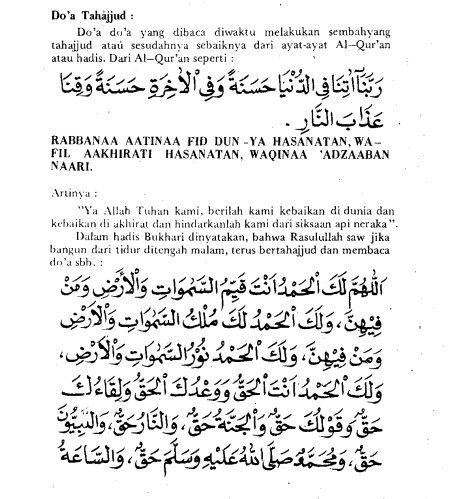 Do'a Tahajjud :
Do'a do'a yang dibaca diwaktu melakukan sembahyang
tahajjud atau sesudahnya sebaiknya dari ayat-ayat Al-Qur'an
atau hadis. Dari Al-Qur'an seperti :
رَبَّنَآ اٰتِنَا فِى الدُّنْيَا حَسَنَةً وَفِى الْاٰخِرَةِ حَسَنَةً وَقِنَا
عَذَابَ النَّارِ .
RABBANAA AATINAA FID DUN -YA HASANATAN, WA-
FIL AAKHIRATI HASANATAN, WAQINAA 'ADZAABAN
NAARI.
Artinya :
"Ya Allah Tuhan kami, berilah kami kebaikan di dunia dan
kebaikan di akhirat dan hindarkanlah kami dari siksaan api neraka".
Dalam hadis Bukhari dinyatakan, bahwa Rasulullah saw jika
bangun dari tidur ditengah malam, terus bertahajjud dan membaca
do'a sbb. :
اَللّٰهُمَّ لَكَ الْحَمْدُ اَنْتَ قَيِّمُ السَّمٰوَاتِ وَالْاَرْضِ وَمَنْ
فِيْهِنَّ، وَلَكَ الْحَمْدُ لَكَ مُلْكُ السَّمٰوَاتِ وَالْاَرْضِ
وَمَنْ فِيْهِنَّ، وَلَكَ الْحَمْدُ نُوْرُ السَّمٰوَاتِ وَالْاَرْضِ،
وَلَكَ الْحَمْدُ اَنْتَ الْحَقُّ وَوَعْدُكَ الْحَقُّ وَلِقَاءُكَ
حَقٌّ وَقَوْلُكَ حَقٌّ وَالْجَنَّةُ حَقٌّ، وَالنَّارُ حَقٌّ، وَالنَّبِيُّوْنَ
حَقٌّ، وَمُحَمَّدٌ صَلَّى اللهُ عَلَيْهِ وَسَلَّمَ حَقٌّ، وَالسَّاعَةُ